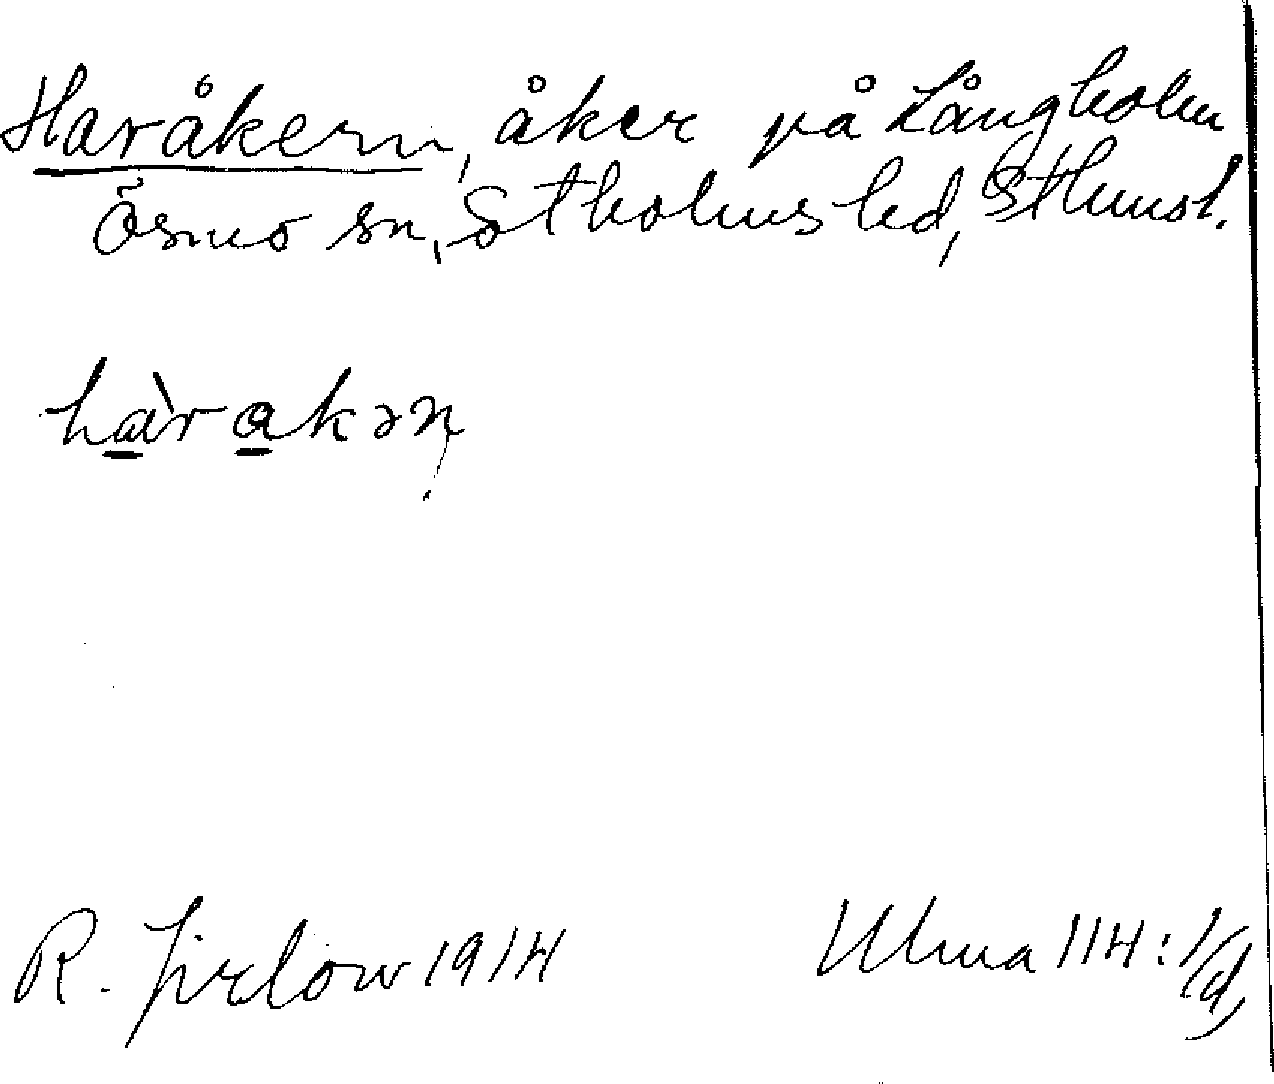 Haråkern, åker på Långholm
Ösmo sn, Stholms led, Sthmsl.
hàrakən
R. Jirlow 1914
Ulma 114:1/d,